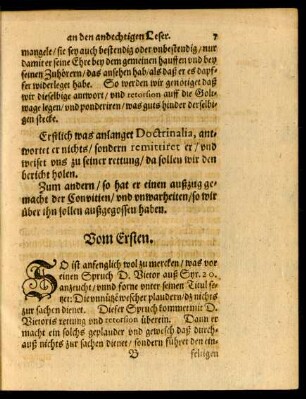 an den andechtigen Leser. 7
mangele/ sie sey auch bestendig oder unbestendig/ nur
damit er seine Ehre bey dem gemeinen hauffen und bey
seinen Zuhörern/ das ansehen hab/ als daß er es dapf-
fer widerleget habe. So werden wir genötiget daß
wir dieselbige antwort/ und retorsion auff die Golt-
wage legen/ und ponderiren/ was guts hinder derselbi-
gen stecke.
Erstlich was anlanget Doctrinalia, ant-
wortet er nichts/ sondern remittiret er/ und
weiset uns zu seiner rettung/ da sollen wir den
bericht holen.
Zum andern/ so hat er einen außzug ge-
macht der Convitien/ und unwarheiten/ so wir
über ihn sollen außgegossen haben.
Vom Ersten.
SO ist anfenglich wol zu mercken/ was vor
einen Spruch D. Victor auß Syr. 20.
anzeucht/ unnd forne unter seinen Titul se-
tzet: Die unnütze wescher plaudern/ dz nichts
zur sachen dienet. Dieser Spruch kommet mit D.
Victoris rettung und retorsion überein. Dann er
macht ein solchs geplauder und gewesch daß durch-
auß nichts zur sachen dienet/ sondern führet den ein-
B feltigen